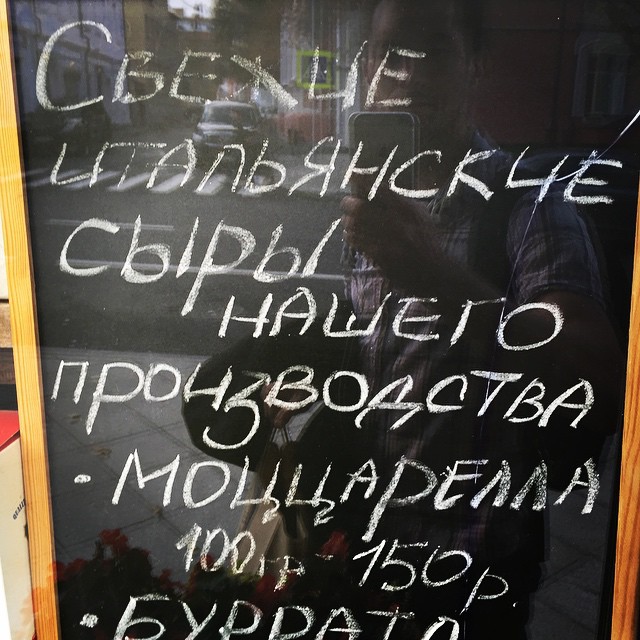 СВЕЖИЕ
ИТАЛЬЯНСКИЕ
СЫРЫ
НАШЕГО
ПРОИЗВОДСТВА
• МОЦЦАРЕЛЛА
100гр - 150р.
• БУРРАТА